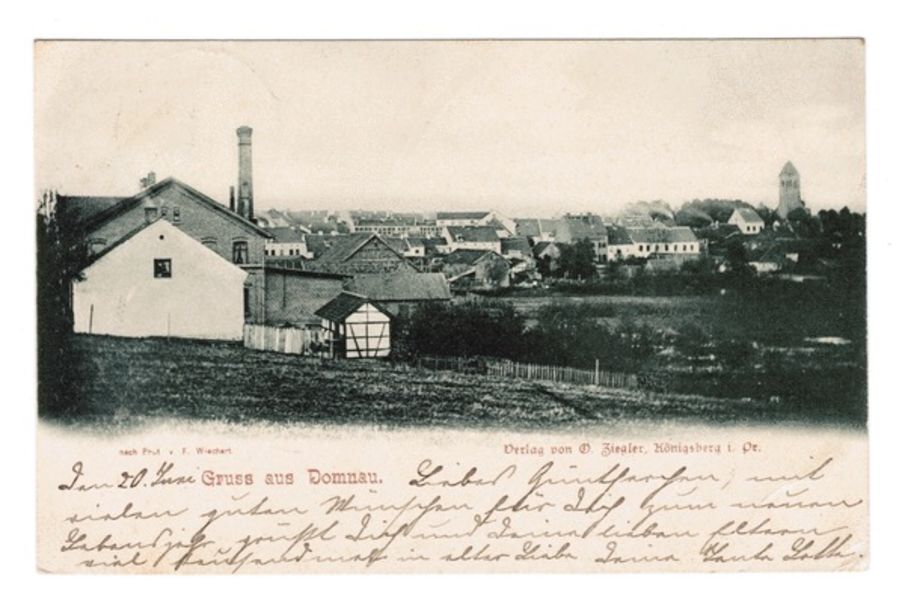 nach Phot. v. F. Wiechert.
Verlag von O. Ziegler, Königsberg i. Pr.
Den 20. Juni Gruss aus Domnau. Liebes Güntherchen, mit
vielen guten Wünschen für Dich zum neuen
Lebensjahr grüßt Dich und Deine lieben Eltern
viel tausendmal in alter Liebe Deine Tante Lotte.